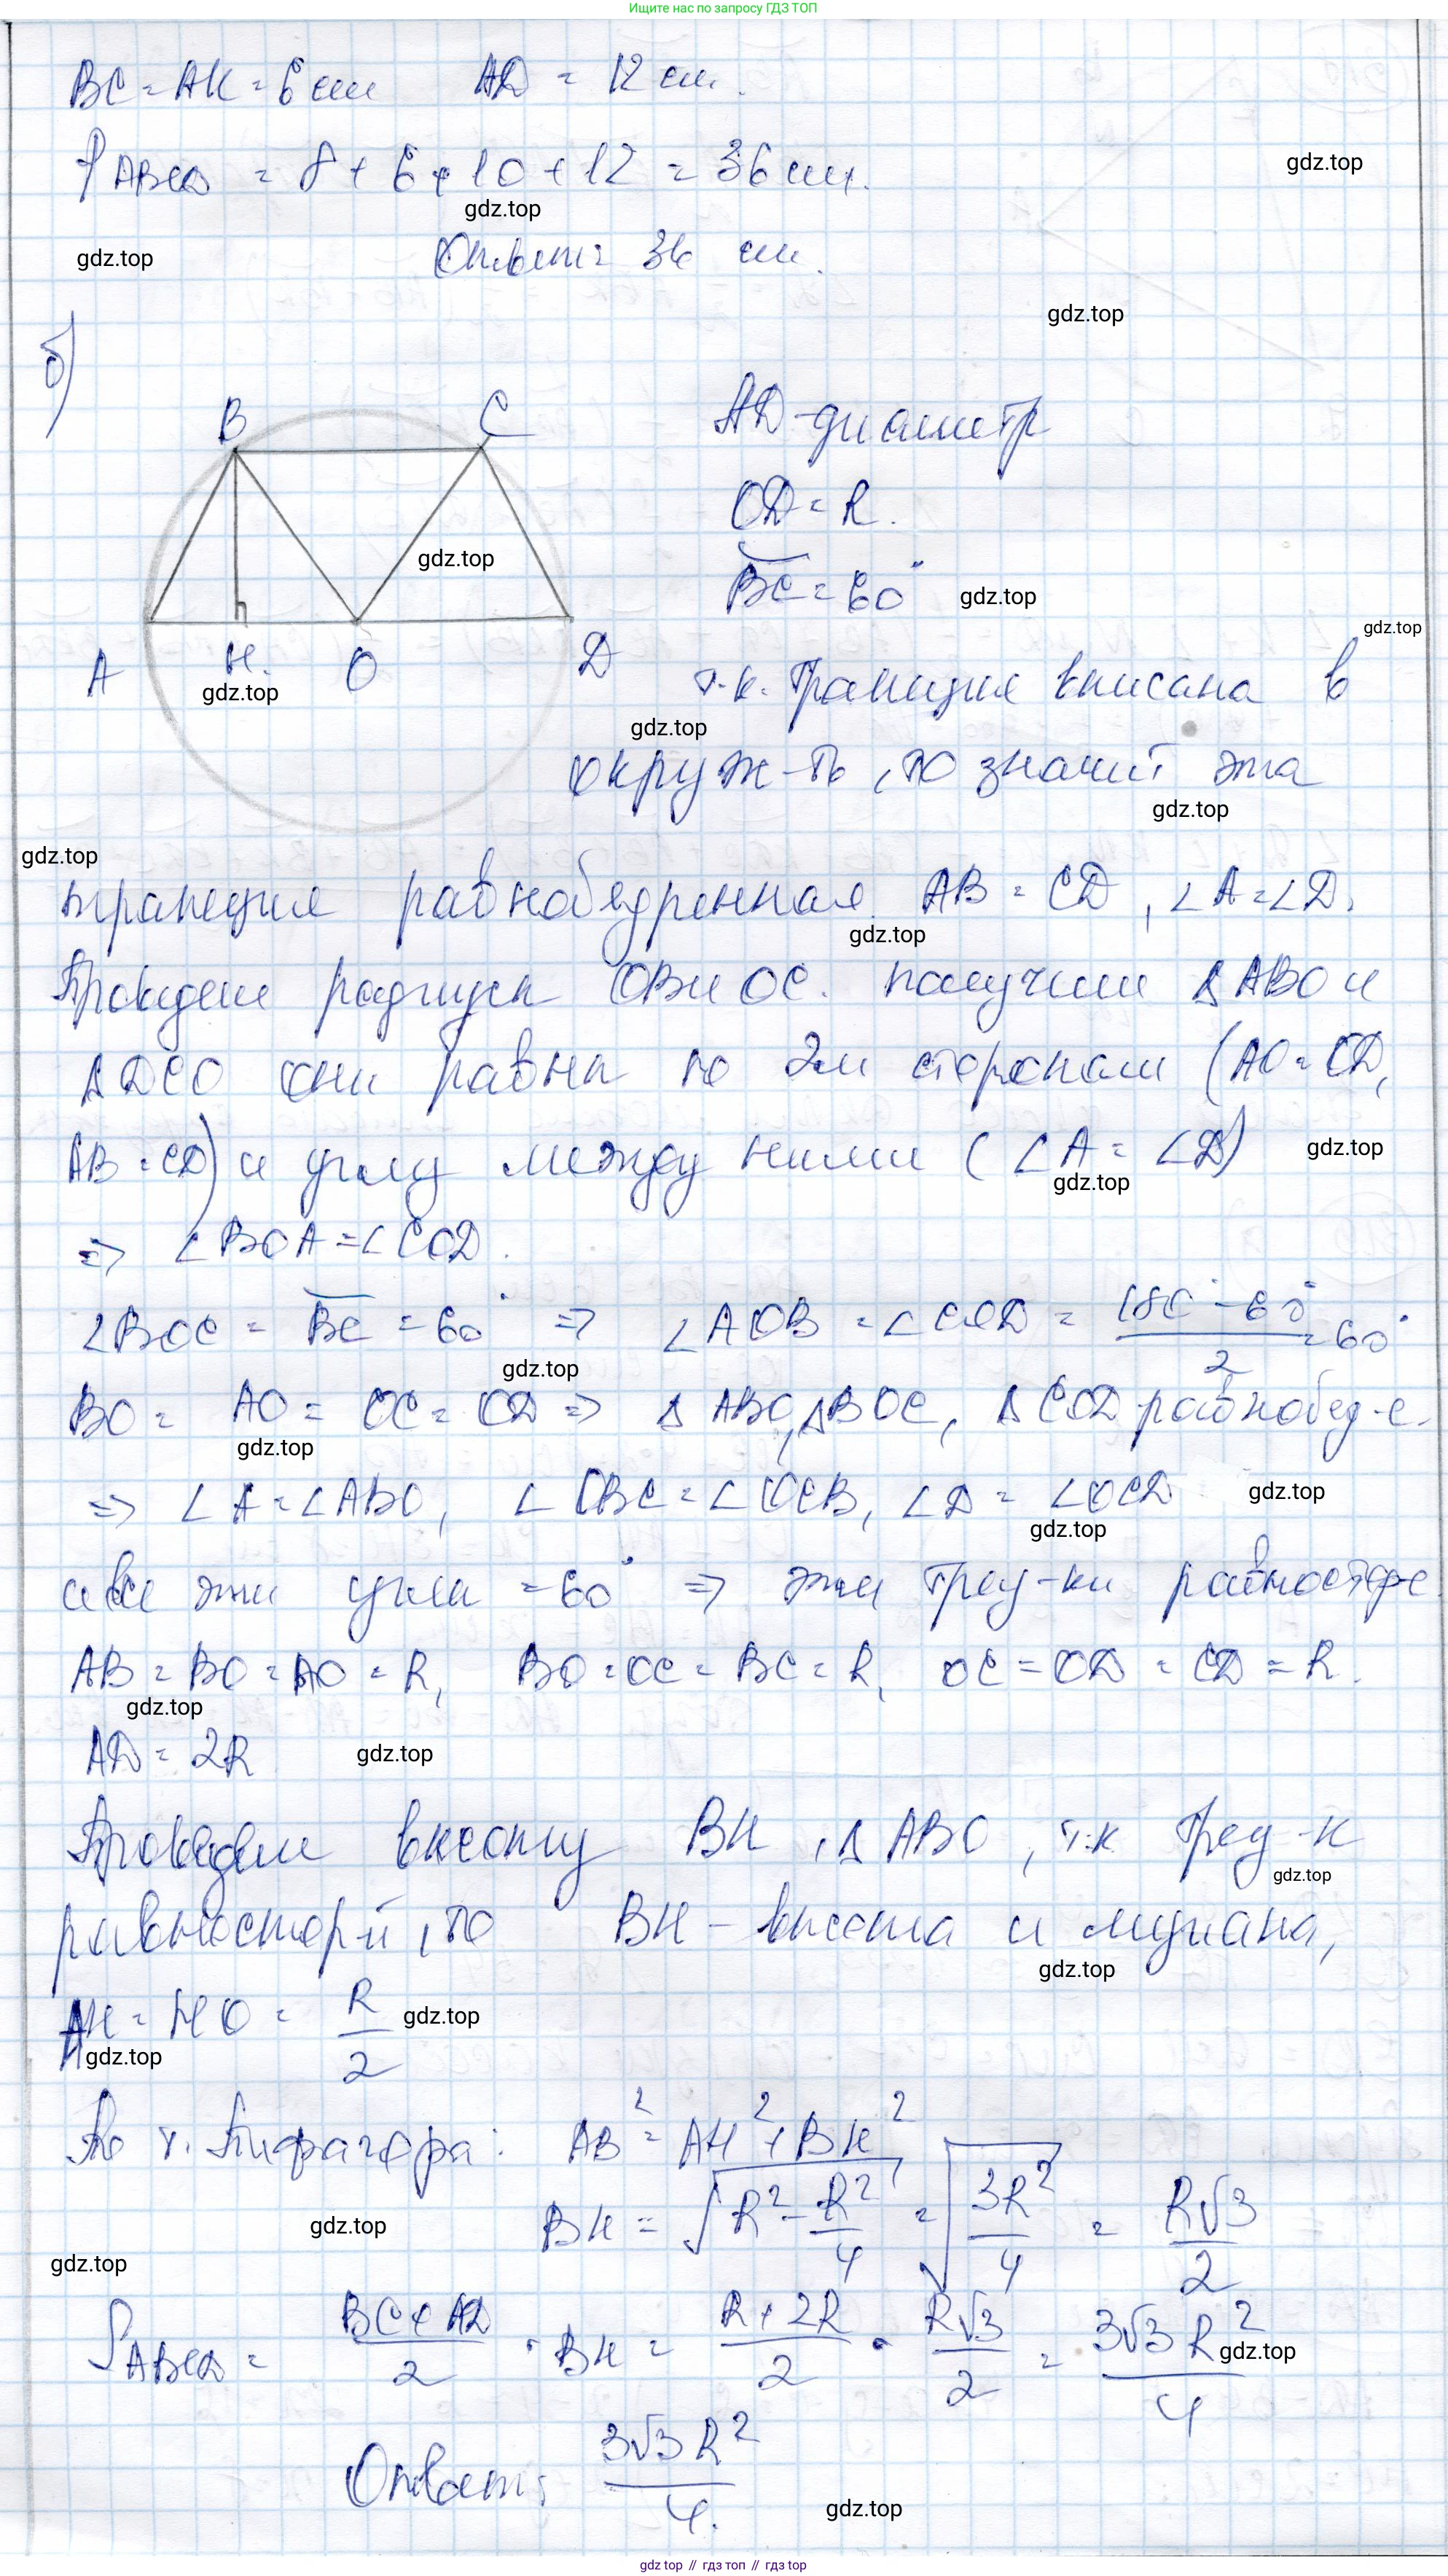 Ищите нас по запросу ГДЗ ТОП
BC = AK = 6 см AD = 12 см.
P ABCD = 8 + 6 + 10 + 12 = 36 см.
gdz.top
gdz.top
gdz.top
Ответ: 36 см.
gdz.top
б)
B C
AD - диаметр
OD = R.
gdz.top
BC = 60°
gdz.top
gdz.top
A H. O D
gdz.top
т.к. трапеция вписана в
gdz.top
окруж-ть, то значит эта
gdz.top
gdz.top
трапеция равнобедренная. AB = CD, ∠A = ∠D.
gdz.top
Проведем радиусы OB и OC. получим ΔABO и
ΔDCO они равны по 2м сторонам (AO = OD,
AB = CD) и углу между ними (∠A = ∠D)
gdz.top
gdz.top
⇒ ∠BOA = ∠COD.
∠BOC = BC = 60° ⇒ ∠AOB = ∠COD = (180° - 60°)/2 = 60°
gdz.top
BO = AO = OC = OD ⇒ ΔABO, ΔBOC, ΔCOD равнобед-е.
gdz.top
⇒ ∠A = ∠ABO, ∠OBC = ∠OCB, ∠D = ∠OCD
gdz.top
gdz.top
и все эти углы = 60° ⇒ эти треу-ки равностор-е
AB = BO = AO = R, BO = OC = BC = R, OC = OD = CD = R.
gdz.top
AD = 2R
gdz.top
Проведем высоту BH, ΔABO, т.к треу-к
gdz.top
равностор-й, то BH - высота и медиана,
gdz.top
AH = HO = R/2
gdz.top
gdz.top
По т. Пифагора: AB² = AH² + BH²
BH = √(R² - R²/4) = √(3R²/4) = R√3/2
gdz.top
gdz.top
S ABCD = (BC + AD)/2 · BH = (R + 2R)/2 · R√3/2 = 3√3 R²/4
gdz.top
Ответ: 3√3 R²/4.
gdz.top
gdz top // гдз топ // gdz top